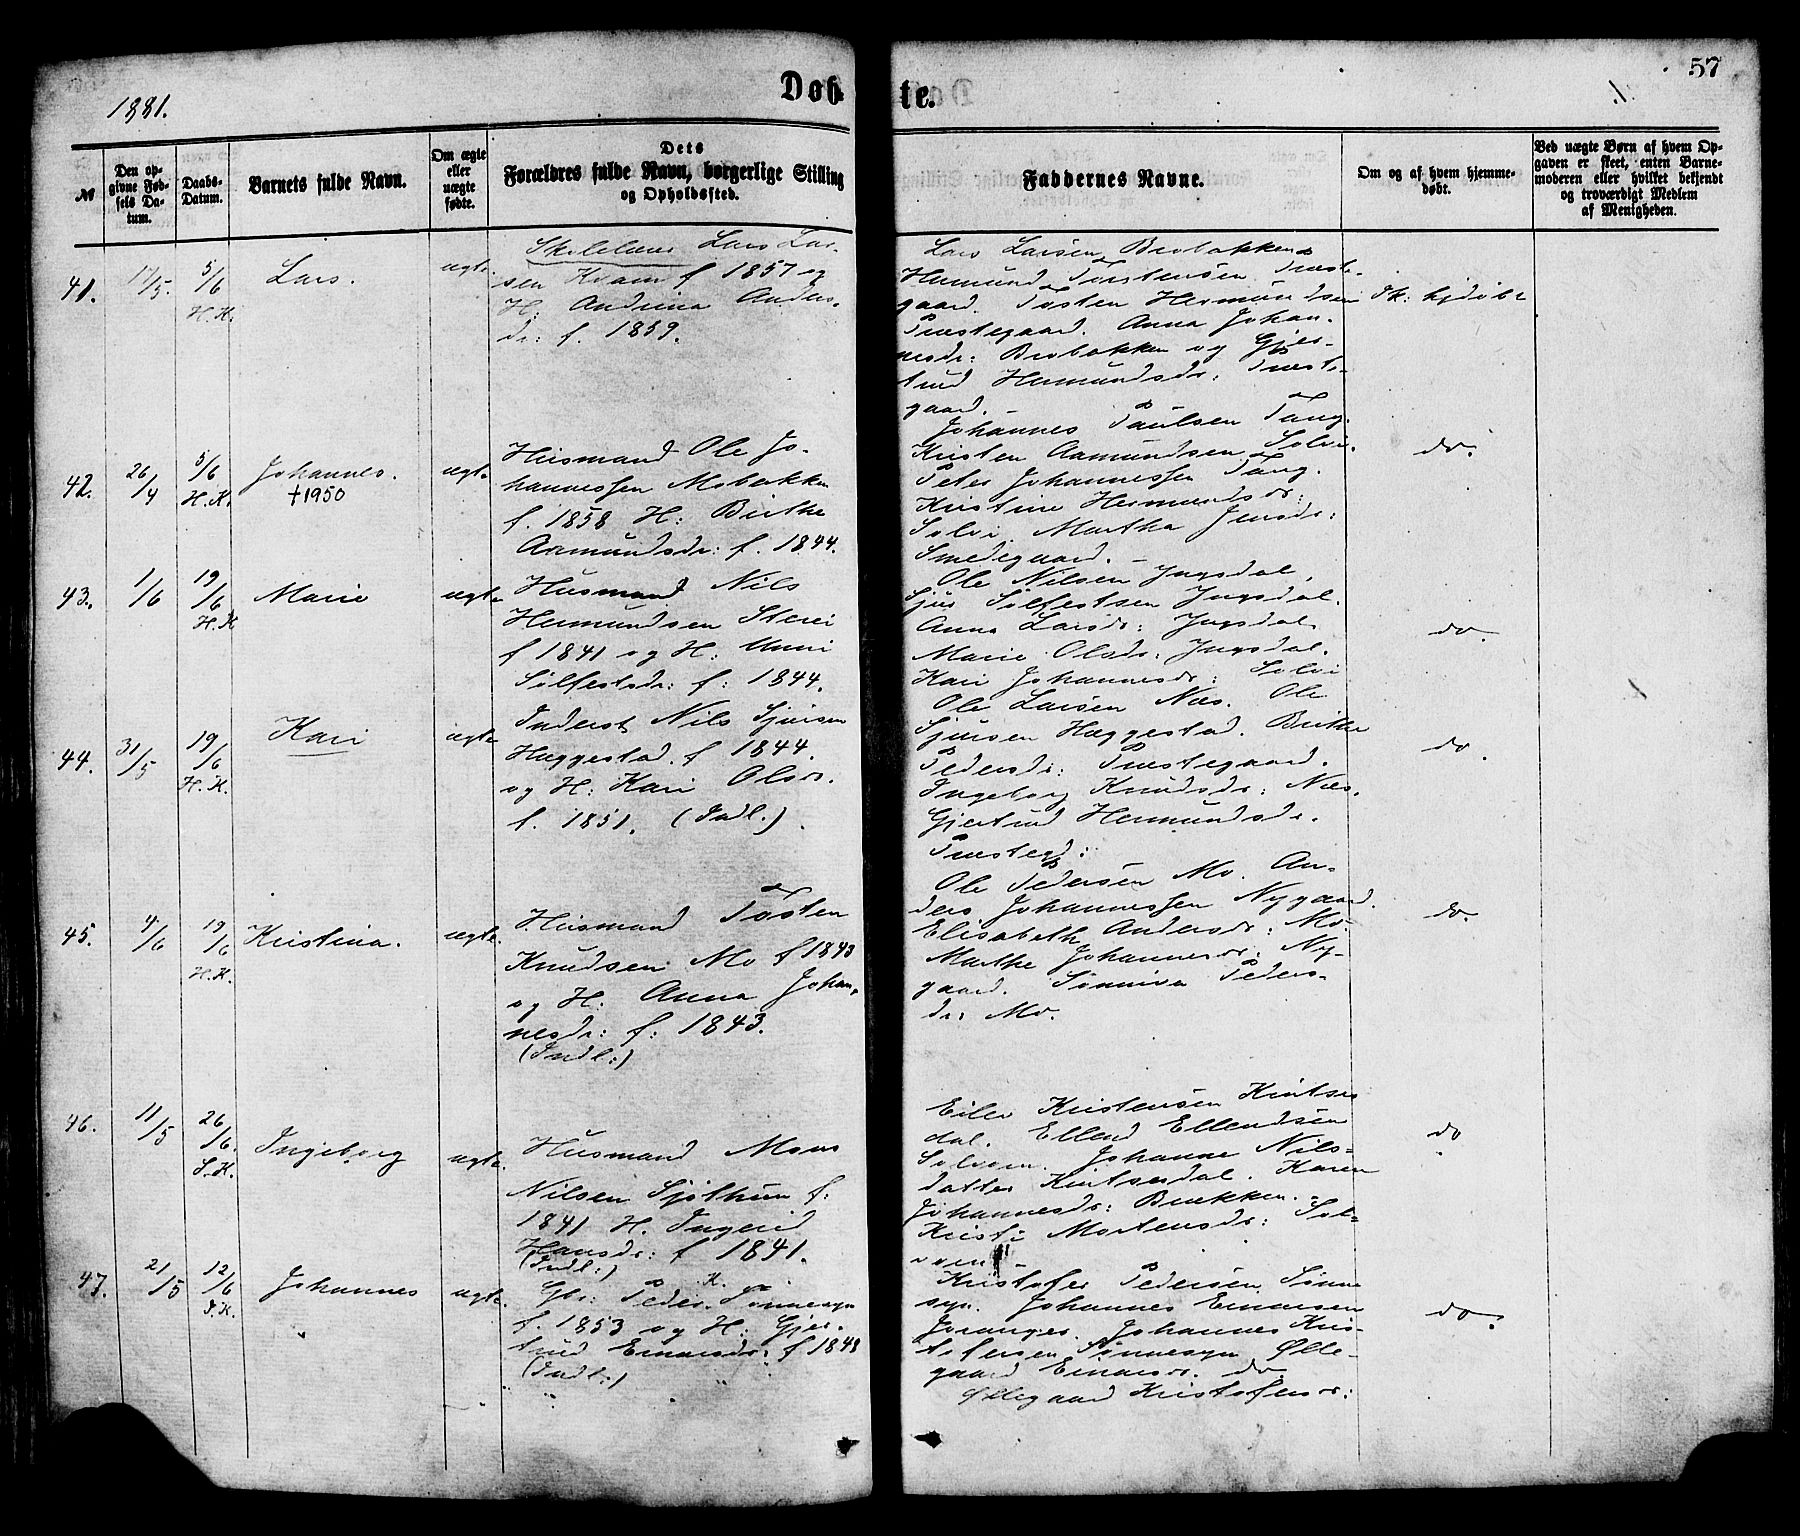 57
1881.
Døbte.
№
Den opgivne Fødsels Datum.
Daabs-Datum.
Barnets fulde Navn.
Om ægte eller uægte fødte.
Dets Forældres fulde Navn, borgerlige Stilling og Opholdssted.
Faddernes Navne.
Om og af hvem hjemmedøbt.
Ved uægte Børn af hvem Opgaven er skeet, enten Barnemoderen eller hvilket bekjendt og troværdigt Medlem af Menigheden.
41.
17/5.
5/6
H. K.
Lars.
ægte
Skolelærer Lars Lar-
sen Kvam f 1857 og
H: Andrina Anders-
dr: f. 1859.
Lars Larsen Brobakken
Hermund Torstensen Præste-
gaard. Tosten Hermundsen
Præstegaard. Anna Johan-
nesdr: Brobakken og Gjer-
trud Hermundsdr: Præste-
gaard. –
Ik: hjdøbt
42.
26/4
5/6
H. K.
Johannes.
†1950
ægte
Husmand Ole Jo-
hannessen Mobakken
f. 1858 H: Birthe
Aamundsdr: f. 1844.
Johannes Paulsen Tang.
Kristen Aamundsen Solvi.
Peter Johannessen Tang.
Kristine Hermundsdr:
Solvi. Martha Jensdr:
Smedegaard. –
do.
43.
1/6
19/6
H. K
Marie
ægte
Husmand Nils
Hermundsen Steiei
f 1841 og H: Unni
Sølfestsdr: f: 1844.
Ole Nilsen Ingsdal,
Sjur Sølfestsen Ingsdal.
Anna Larsdr: Ingsdal
Marie Olsdr: Ingsdal.
Kari Johannesdr: Solvi
do.
44.
31/5
19/6
H. K.
Kari
ægte
Inderst Nils Sjursen
Hæggestad. f 1844.
og H: Kari Olsdr.
f. 1851. (Indl.)
Ole Larsen Næs. Ole
Sjursen Hæggestad. Birthe
Pedersdr: Præstegaard.
Ingeborg Knudsdr: Næs.
Gjertrud Hermundsdr.
Præstegd:
do.
45.
4/6
19/6
H. K.
Kristina.
ægte.
Husmand Tosten
Knudsen Mo f 1843
og H: Anna Johan-
nesdr: f: 1843.
(Indl:)
Ole Pedersen Mo. An-
ders Johannessen Nygaard.
Elisabeth Andersdr: Mo.
Marthe Johannesdr: Ny-
gaard. Sønniva Peders-
dr: Mo.
do.
46.
11/5
26/6.
S. K.
Ingeborg
ægte.
Husmand Mons
Nilsen Sjøthun f:
1841 H. Ingerid
Hansdr: f 1841.
(Indl:)
Eiler Kristensen
dal. Ellend Ellendsen
Solvorn. Johanne Nils-
datter. Karen
Johannesdr: Brækken. –
Kristi Mortensdr: Sol-
vorn –
do
47.
21/5
12/6
J. K.
Johannes
ægte.
Gbr: Peder K. Tønnesyn
f. 1853 og H: Gjer-
trud Einarsdr: f 1848
(Indl:)
Kristofer Pedersen Tønne
syn. Johannes Einarsen
Joranger. Johannes Kris-
tofersen Tønnesyn Ølle-
gaard Einarsdr. do
Øllegaard Kristofersdr:
do.